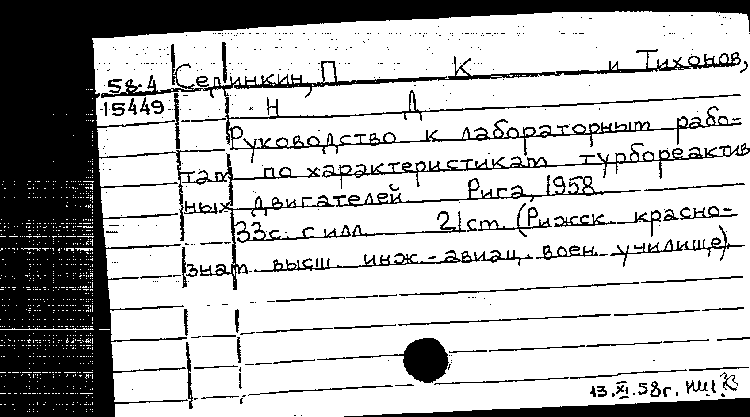 58.4 Сединкин, П К и Тихонов,
15449 Н Д
Руководство к лабораторным рабо-
там по характеристикам турбореактив
ных двигателей Рига, 1958
33с. с илл. 21см. (Рижск. красно-
знам. высш. инж.-авиац. воен. училище).
13.XI.58г.